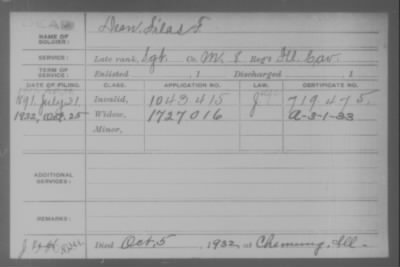 DEAD
NAME OF SOLDIER: Dean, Silas F.
SERVICE: Late rank, Sgt. Co. M, 8 Reg't Ill. Cav.
TERM OF SERVICE: Enlisted , 1 Discharged , 1
DATE OF FILING. CLASS. APPLICATION NO. LAW. CERTIFICATE NO.
1891, July 21. Invalid, 1043415 719475.
1932, Oct. 25 Widow, 1727016 A-3-1-33
Minor,
ADDITIONAL SERVICES:
REMARKS:
Died Oct. 5, 1932, at Chemung, Ill.